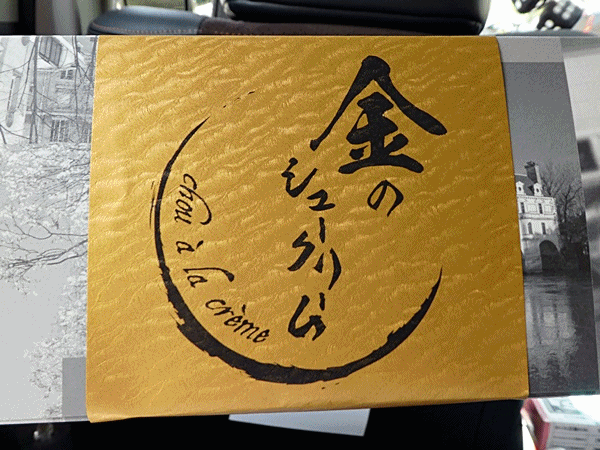 金の
シュークリーム
chou à la crème